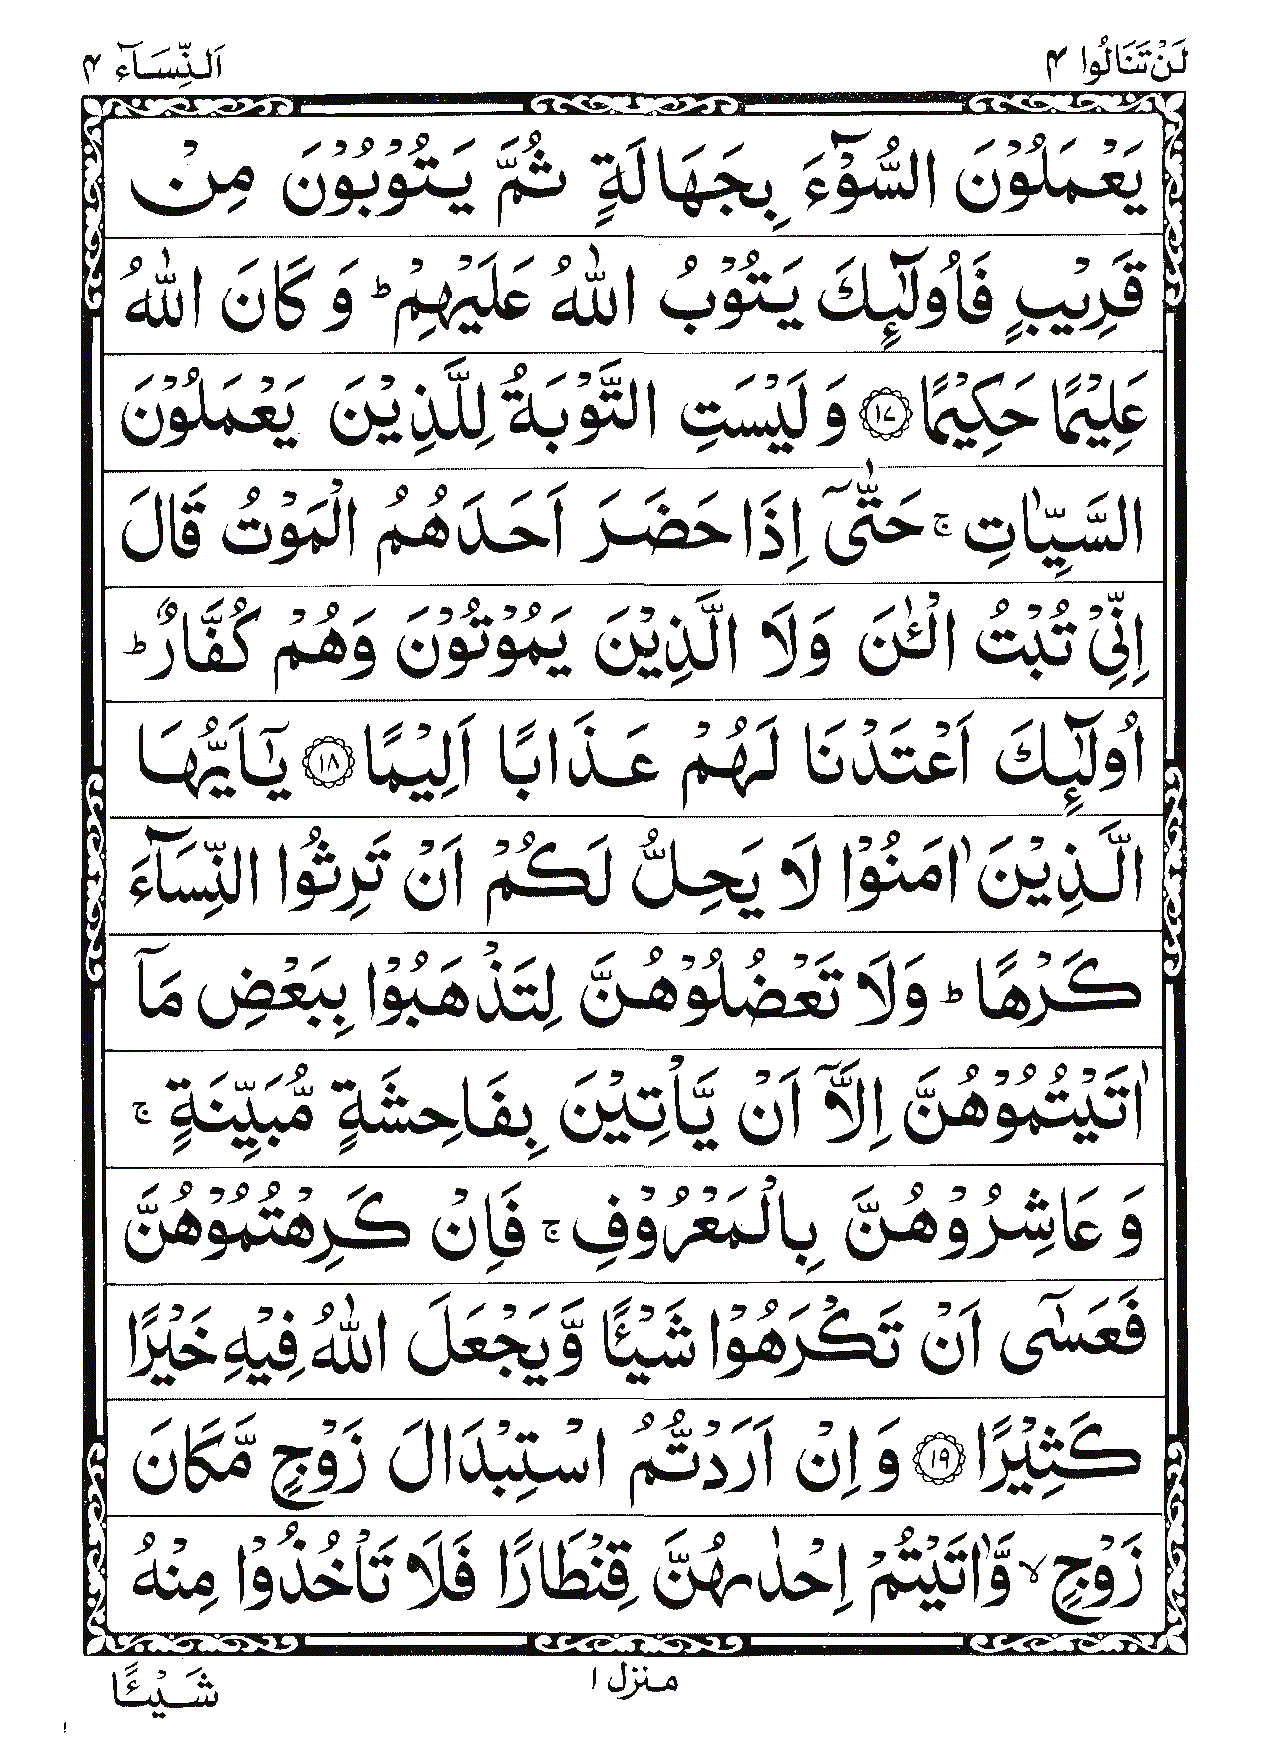 لَنْ تَنَالُوا ۴
اَلنِّسَآء ۴
يَعْمَلُوْنَ السُّوْٓءَ بِجَهَالَةٍ ثُمَّ يَتُوْبُوْنَ مِنْ
قَرِيْبٍ فَاُولٰٓئِكَ يَتُوْبُ اللّٰهُ عَلَيْهِمْ ؕ وَ كَانَ اللّٰهُ
عَلِيْمًا حَكِيْمًا ﴿۱۷﴾ وَ لَيْسَتِ التَّوْبَةُ لِلَّذِيْنَ يَعْمَلُوْنَ
السَّيِّاٰتِ ۚ حَتّٰۤى اِذَا حَضَرَ اَحَدَهُمُ الْمَوْتُ قَالَ
اِنِّيْ تُبْتُ الْـٰٔنَ وَلَا الَّذِيْنَ يَمُوْتُوْنَ وَهُمْ كُفَّارٌ ؕ
اُولٰٓئِكَ اَعْتَدْنَا لَهُمْ عَذَابًا اَلِيْمًا ﴿۱۸﴾ يٰۤاَيُّهَا
الَّذِيْنَ اٰمَنُوْا لَا يَحِلُّ لَكُمْ اَنْ تَرِثُوا النِّسَآءَ
كَرْهًا ؕ وَلَا تَعْضُلُوْهُنَّ لِتَذْهَبُوْا بِبَعْضِ مَاۤ
اٰتَيْتُمُوْهُنَّ اِلَّاۤ اَنْ يَّاْتِيْنَ بِفَاحِشَةٍ مُّبَيِّنَةٍ ۚ
وَ عَاشِرُوْهُنَّ بِالْمَعْرُوْفِ ۚ فَاِنْ كَرِهْتُمُوْهُنَّ
فَعَسٰۤى اَنْ تَكْرَهُوْا شَيْـًٔا وَّ يَجْعَلَ اللّٰهُ فِيْهِ خَيْرًا
كَثِيْرًا ﴿۱۹﴾ وَ اِنْ اَرَدْتُّمُ اسْتِبْدَالَ زَوْجٍ مَّكَانَ
زَوْجٍ ۙ وَّاٰتَيْتُمْ اِحْدٰىهُنَّ قِنْطَارًا فَلَا تَاْخُذُوْا مِنْهُ
منزل ۱
شَيْـًٔا